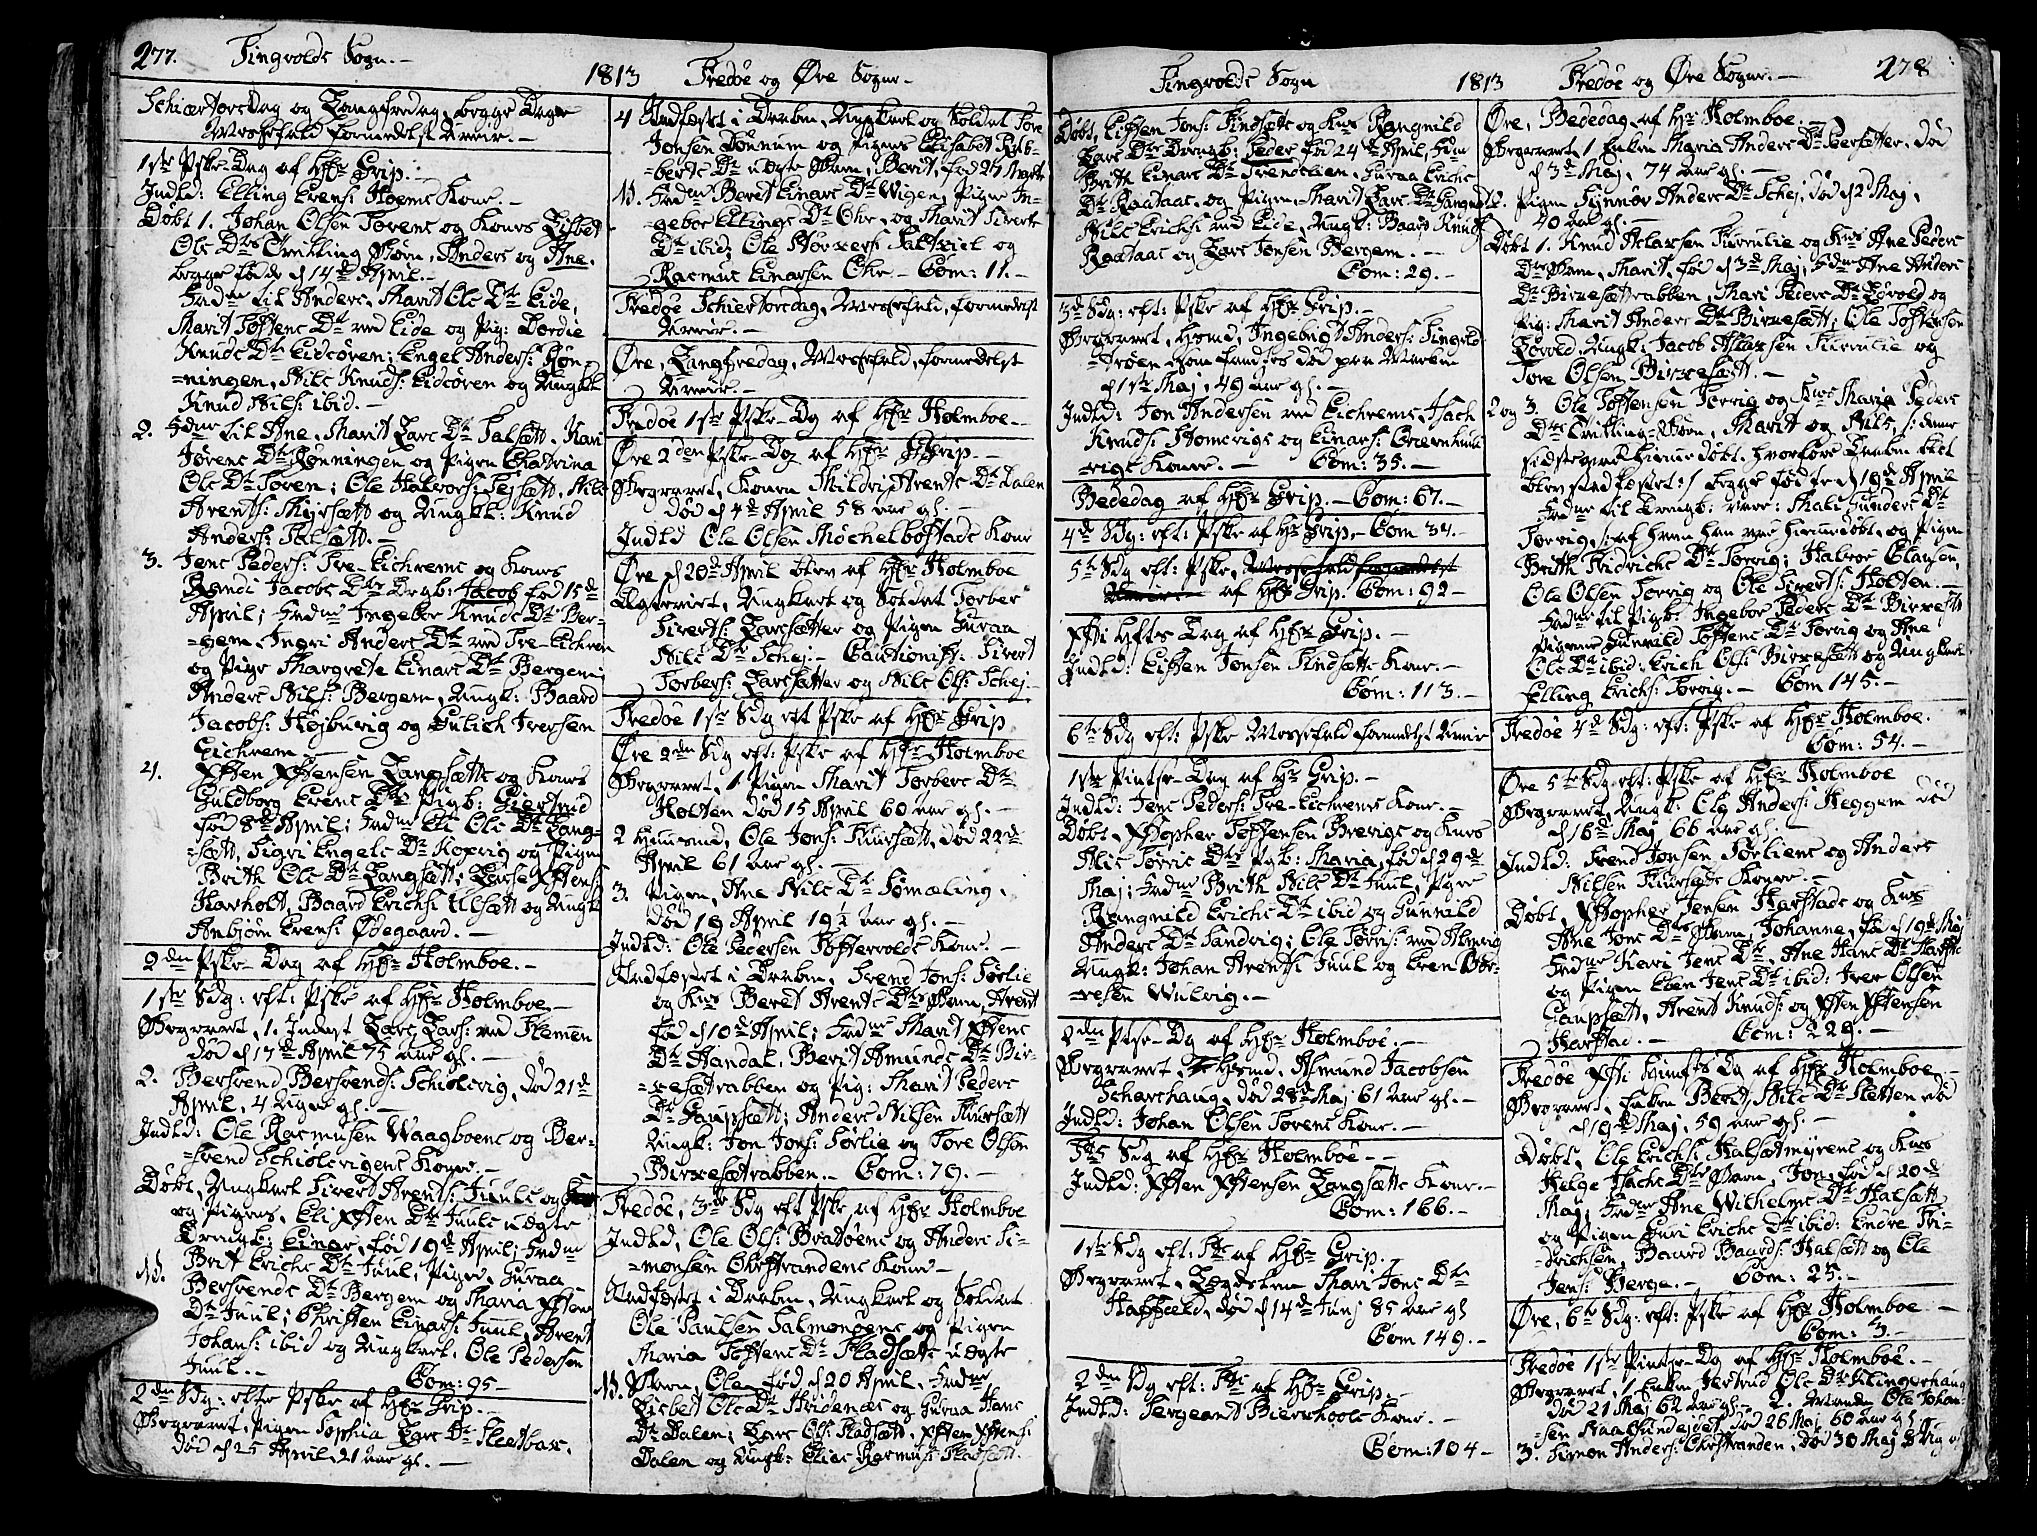 277. Tingvolds Sogn.-
1813 Fredøe og Øre Sogne.-
Schiærtorsdag og Langfredag, begge Dage
Messefald formedelst Uveir.-
1ste Pske-Dag af Hr Grip.-
Indld: Elling Erens: Hoems Kone.-
Døbt 1. Johan Olsen Torens og Kones Lisbet
Ole Dtrs Tvilling Børn, Anders og Ane,
begge fødde d 14de April.-
Fadne til Anders, Marit Ols Dtr Eide,
Marit Toffens Dtr ved Eide og Pig: Dordie
Knuds Dtr Eidsøren; Engel Anders: Røn-
=ningen, Nils Knuds: Eidsøren og Ungkl
Knud Nils: ibid.-
2. Fadne til Ane, Marit Lars Dtr Talsætt, Kari
Jørens Dtr Rønningen og Pigen Chatrina
Ols Dtr Toren; Ole Halvors: Sejsætt, Nils
Arents: Myrsætt og Ungkl: Knud
Anders: Talsætt.-
3. Jens Peders: Tre-Eichrems og Kones
Randi Jacobs Dtrs Drgb: Jacob fød 15de
April; Fadne Ingebor Knuds Dtr Ber-
=gem, Ingri Anders Dtr ved Tre-Eichrem
og Pige Margrete Einars Dtr Bergem;
Anders Nils: Bergem, Ungk: Baard
Jacobs: Højbuvig og Gulich Iversen
Eichrem.-
4. Xsten Xstensen Langsætts og Kones
Guldborg Erens Dtrs Pigb: Giertrud
fød 8de April; Fadne Eli Ols Dtr Lang-
=sætt, Sigri Engels Dtr Koxvig og Pigen
Brith Ols Dtr Langsætt; Lars Xstens:
Harholt, Baard Erichs: Ulsætt og Ungk:
Anbjørn Erens: Ødegaard.-
2den Pske-Dag af Hr Holmboe.-
1ste Sdg: eft: Pske af Hr Holmboe-
Begravet, 1. Inderst Lars Lars: ved Flemen
død d 17de April 75 aar gl.-
2. Bersvend Bersvends: Schiølsvig, død 21de
April, 4 Uger gl.-
Indld: Ole Rasmusen Waagboens og Ber-
=svend Schiølsvigens Koner.-
Døbt, Ungkarl Sivert Arents: Juuls og
og Pigens, Eli Xsten Dtr Juuls uægte
Drengb: Einar, fød 19de April; Fadne
Brit Erichs Dtr Juul, Piger, Guraa
Bersvends Dtr Bergem og Maria Xstens
Dtr Juul; Christen Einars: Juul, Arent
Johans: ibid og Ungkarl, Ole Pedersen
Juul.- Com: 95-
2den Sdg: efter Pske af Hr Grip.-
Begravet, Pigen Sophia Lars Dtr Sleetbax,
død d 25 April, 21 aar gl.-
4 Stadfæstet i Daaben, Ungkarl og Soldat Tore
Jonsen Bønnum og Pigens Elisabet Rub-
=berts Dtr uægte Barn, Berit, fød 27 Marts
Fadne Beret Einars Dtr Wigen, Piger In-
gebor Ellings Dtr Ohr, og Marit Siverts
Dtr ibid; Ole Størxers: Saltziel og
Rasmus Einarsen Ohr.- Com: 11.-
Fredøe Schiertorsdag, Messefald, formedelst
Uveir.-
Øre, Langfredag, Messefald, formedelst
Uveir.-
Fredøe 1ste Pske-Dg af Hr Holmboe.-
Øre 2den Pske-Dag af Hr Grip.-
Begravet, Konen Mildri Arents Dtr Dalen
død d 4de April 58 aar gl.-
Indld Ole Olsen Møchelbostads Kone
Øre d 20de April blev af Hr Holmboe
Ægteviet, Ungkarl og Soldat Torber
Siverts: Larssætter og Pigen Guraa
Nils Dtr Schej.- Cautionist: Sivert
Torbers: Larssætter og Nils Ols: Schej.-
Fredøe 1ste Sdg eft Pske af Hr Grip
Øre 2den Sdg eft: Pske af Hr Holmboe
Begravet, 1 Pigen Marit Torbers Dtr
Holten død 15 April 60 aar gl.-
2 Huusmd, Ole Jons: Fuursætt, død 22de
April 61 aar gl.-
3. Pigen, Ane Nils Dtr Sømæling,
død 19 April 19½ aar gl.-
Indld: Ole Pedersen Toftervolds Kone.-
Stadfæstet i Daaben, Trend Jons: Sørlie
og Kns Beret Arents Dtrs Barn, Arent
fød d 10de April; Fadne Marit Xstens
Dtr Aandal, Berit Amunds Dtr Bir-
=xesætrabben og Pig: Marit Peders
Dtr Gaupsætt; Anders Nilsen Fuursætt
Ungk: Jon Jons: Sørlie og Tore Olsen
Birxesætrabben.- Com: 79.-
Fredøe, 3die Sdg eft Pske af Hr Holmboe
Indld, Ole Ols: Bratøens og Anders Si-
=monsen Ohrstrandens Koner-
Stadfæstet i Daaben, Ungkarl og Soldat
Ole Paulsen Salmonsens og Pigen
Maria Toffens Dtr Stadsætts uægte
Barn, Ole, fød d 20 April, Fadne
Lisbet Ols Dtr Stridenæs og Guraa Hans
Dtr Dalen; Lars Ols: Stadsætt, Xsten Xstens:
Dalen og Ungk: Elias Rasmus: Stadsætt.
Tingvolds Sogn 1813 Fredøe og Øre Sogne.- 278
Døbt, Eisten Jons: Findsætts og Kns Rangnild
Lars Dtrs Drengb: Peder fød 24de April, Fdn
Brith Einars Dtr Trendtlien, Guraa Erichs
Dtr Raataas, og Pigen Marit Lars Dtr Gangnæs
Nils Erichs: ved Eide, Ungk: Baard Knuds:
Raataas og Lars Jonsen Bergem.-
Com: 29.-
3de Sdg: eft: Pske af Hr Grip.-
Begravet, Hsmd, Ingebrigt Anders: Tingvold
trøen som fandtes død paa Marken
d 1ste Maj, 49 aar gl.-
Indld: Jon Andersen ved Eichrems, Isach
Knuds: Homevigs og Einars: Graven
vigs Koner.- Com: 35.-
Bededag af Hr Grip.- Com: 67.-
4de Sdg: eft: Pske af Hr Grip.- Com 34.-
5te Sdg eft: Pske, Messefald formedelst
Uveir.- af Hr Grip. Com: 92-
Xsti Hfts Dag af Hr Grip.-
Indld: Eisten Jonsen Findsætts Kone.-
Com: 113.-
6te Sdg eft: Pske Messefald formedelst Uveir
1ste Pintse-Dag af Hr Grip.-
Indld: Jens Peders: Tre-Eichrems Kone.-
Døbt, Xstopher Toffensen Brevigs og Kns
Alis Torris Dtrs Pgb: Maria, fød d 29de
Maj; Fadne Brith Nils Dtr Juul, Piger
Rangnild Erichs Dtr ibid og Gunnild
Anders Dtr Sandvig; Ole Torris: ved Almvig
Ungk: Johan Arents: Juul og Eren Bør-
=resen Wulvig.-
2den Ptse-Dg af Hr Holmboe.-
Begravet, Hsmd, Asmund Jacobsen
Scharshaug, død 28de Maj 61 aar gl.-
Indld: Johan Olsen Torens Kone.-
Fts Sdg af Hr Holmboe.--
Indld: Xsten Xstensen Langsætts Kone.-
Com: 166.-
1ste Sdg eft: Fts af Hr Grip.-
Begravet, Lægdslem Mari Jons Dtr
Haffeeld, død d 14de Junj 85 aar gl
Com 149.-
2den Sdg eft: Fts af Hr Grip.-
Indld: Sergeant Bierchools Kone.-
Com: 104-
Øre, Bededag af Hr Holmboe.-
Begravet 1 Enken Maria Anders Dtr Peersætter, død
d 3de Maj, 74 aar gl.-
2. Pigen Synnøv Anders Dtr Schej, død d 2 Maj,
40 aar gl.-
Døbt 1. Knud Aslaxsen Furrulie og Kns Ane Peders
Dtrs Barn, Marit, fød d 3de Maj; Fadne Ane Anders
Dtr Birxesættrabben, Mari Peders Dtr Børvold og
Pig: Marit Anders Dtr Birxesætt; Ole Toftensen
Børvold, Ungk: Jacob Aslaxsen Furrulie og
Tore Olsen Birxesætt.-
2 og 3. Ole Toffensen Torvig og Kns Maria Peders
Dtrs Tvilling-Børn, Marit og Nils, /: denne
sidste ved Hiemmedøbt, hvorfore Daaben blet
blev stadfæstet :/ begge fødde d 19de April
Fadne til Drengb: vare: Mali Gunders Dtr
Torvig, /: af hvem han var hiemmdøbt, og Pigen
Brith Fridrichs Dtr Torvig; Halvor Olaysen,
Ole Olsen Torvig og Ole Siverts: Holten.-
Fadne til Pigb: Ingebor Peders Dtr Birxesæt,
Pigerne Gunnild Toffens Dtr Torvig og Ane
Ols Dtr ibid: Erich Ols: Birxesætt og Ungkarl
Elling Erichs: Torvig.- Com 145.-
Fredøe 4de Sdg: eft: Pske af Hr Holmboe.
Com: 54.-
Øre 5te Sdg: eft: Pske af Hr Holmboe
Begravet, Ungk: Ole Anders: Heggem død
d 16de Maj 66 aar gl.-
Indld: Trend Jonsen Sørliens og Anders
Nilsen Fuursæts Koner.-
Døbt, Xstopher Jensen Harstads og Kns
Ane Jons Dtrs Barn, Johanne, fød d 19de Maj
Fadne Kari Jens Dtr, Ane Hans Dtr Harstad
og Pigen Eren Jens Dtr ibid: Iver Olsen
Gaupsætt, Arent Knuds: og Xsten Xstensen
Harstad.- Com: 229.-
Fredøe Xsti Himfts Dg af Hr Holmboe.-
Begravet, Enken Berit Nils Dtr Sletten død
d 19de Maj, 59 aar gl.-
Døbt, Ole Erichs: Halsætmyrens og Kns
Helge Isachs Dtrs Barn, Jon, fød d 20de
Maj; Fadne Ane Wilhelms Dtr Halsætt,
og Pigen Guri Erichs Dtr ibid: Endre Fri-
=drichsen, Baard Baards: Halsætt og Ole
Jens: Berge.- Com: 25.-
Øre, 6te Sdg: eft: Pske af Hr Holmboe.-
Com: 3.-
Fredøe 1ste Pintse-Dg af Hr Holmboe.-
Begravet, 1 Enken Jertrud Ols Dtr Klingerhaug
død 21 Maj 62 aar gl.- 2. Manden Ole Johan-
sen Raasundejet, død 26 Maj 60 aar gl.
3. Simon Anders: Ohrstranden, død 30 Maj